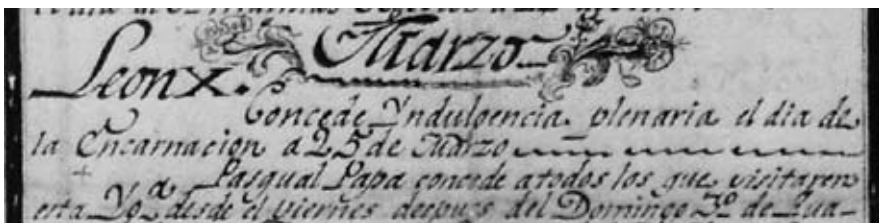 Marzo
Leon X.
Concede Yndulgencia plenaria el dia de
la Encarnacion a 25 de Marzo
Pasqual Papa concede a todos los que visitaren
esta Yg.ª desde el viernes despues del Domingo 3º de Qua-